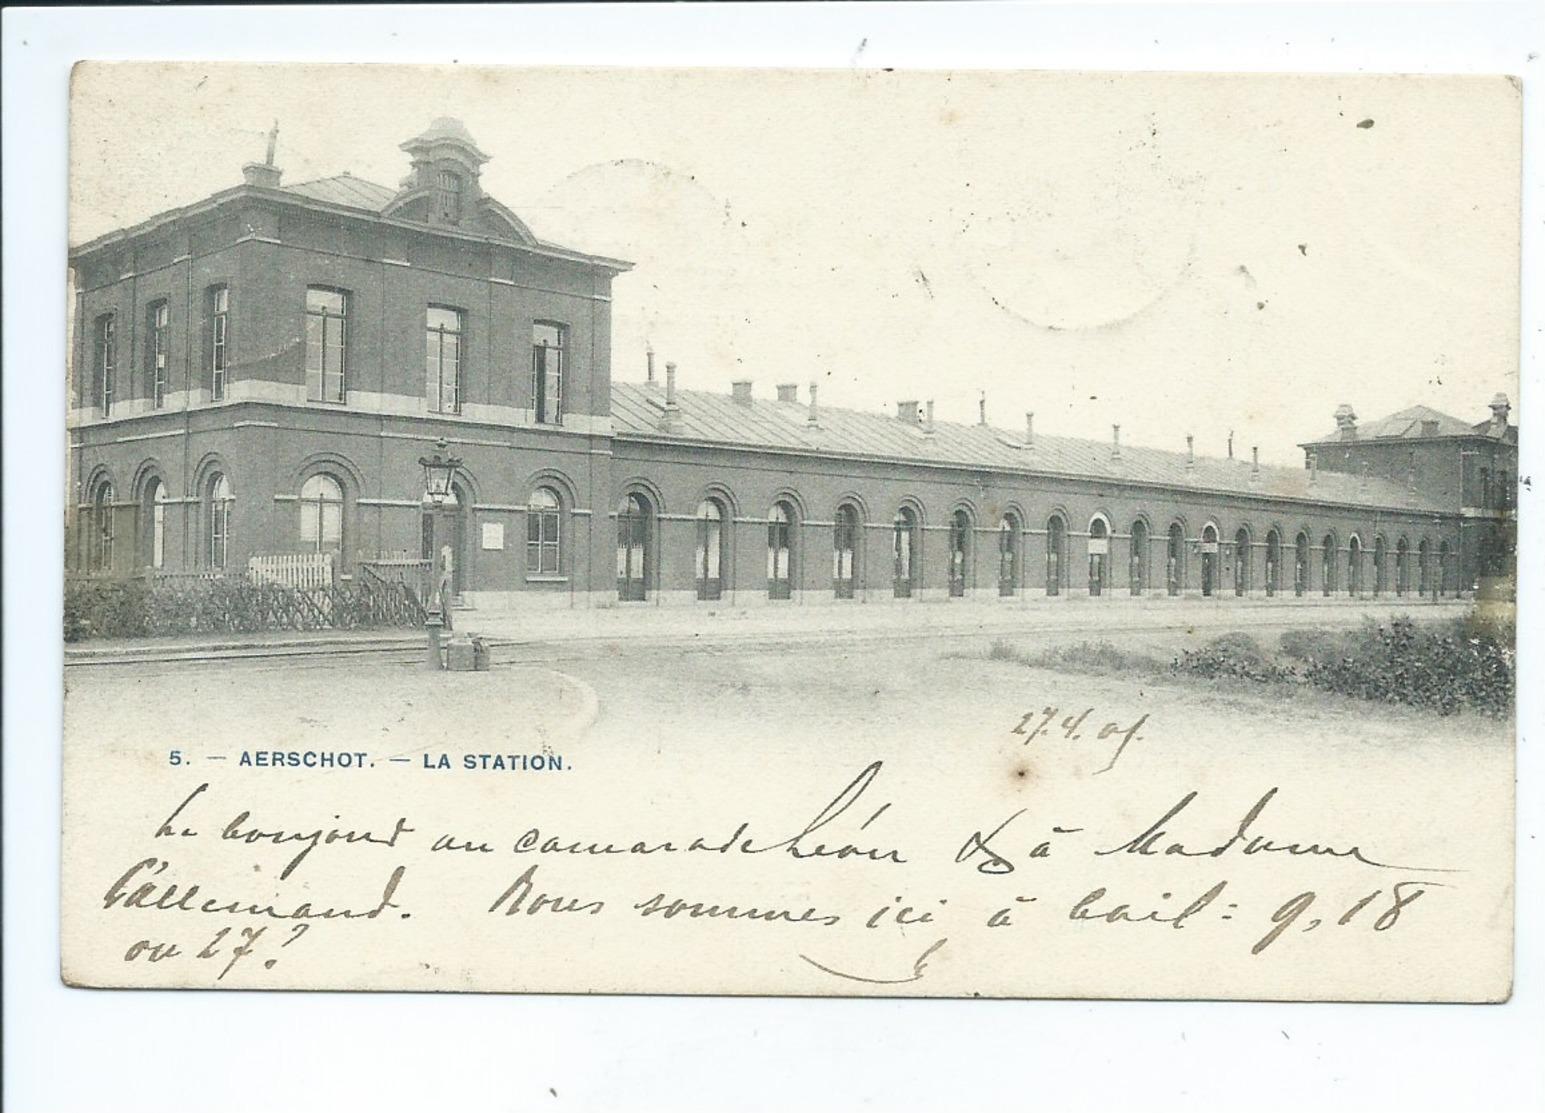 27.4.05.
5. — AERSCHOT. — LA STATION.
Le bonjour au camarade Léon & à Madame
Lallemand. Nous sommes ici à bail : 9, 18
ou 27?